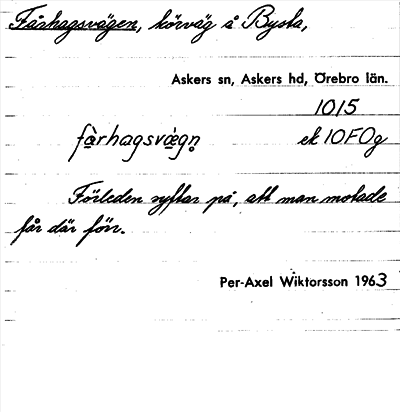 Fårhagsvägen, körväg å Bysta,
Askers sn, Askers hd, Örebro län.
1015
fàrhagsvæ̀gn̥ ek 10F0g
Förleden syftar på, att man motade
får där förr.
Per-Axel Wiktorsson 1963